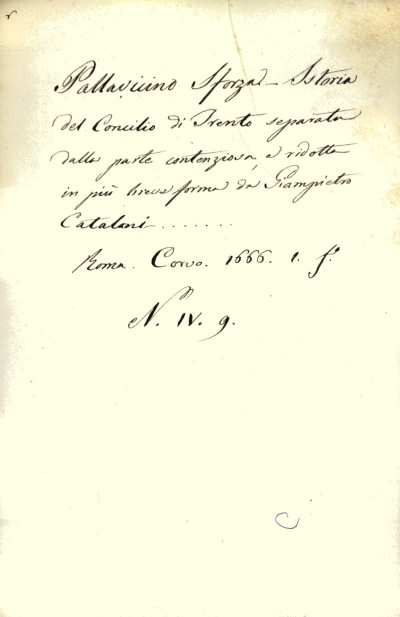 Pallavicino Sforza - Istoria
del Concilio di Trento separata
dalla parte contenziosa, e ridotta
in più breve forma da Giampietro
Cataloni . . . . . . .
Roma. Corvo. 1666. 1. f.º
N. IV. 9.